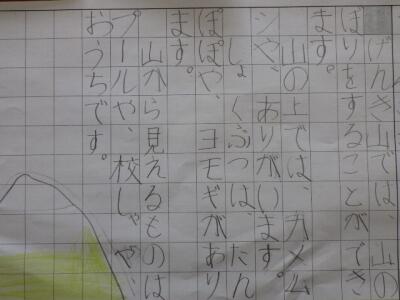 げんき山では、山の
ぼりをすることができ
ます。
山の上では、カメム
シや、ありがいます。
しょくぶつは、たん
ぽぽや、ヨモギがあり
ます。
山から見えるものは
プールや、校しゃや、
おうちです。